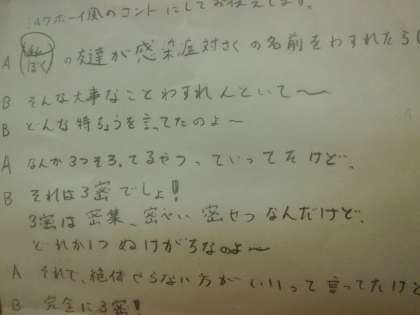 ミルクボーイ風のコントにしてお伝えします。
A ぼくの友達が感染症対さくの名前をわすれたらし
B そんな大事なことわすれんといて〜
B どんな特ちょうを言ってたのよ〜
A なんか3つそろってるやつ、っていってたけど、
B それは3密でしょ!!
3密は密集、密ぺい密せつなんだけど、
どれか1つぬけがちなのよ〜
A それで、絶体やらない方がいいって言ってたけど
B 完全に3密!!